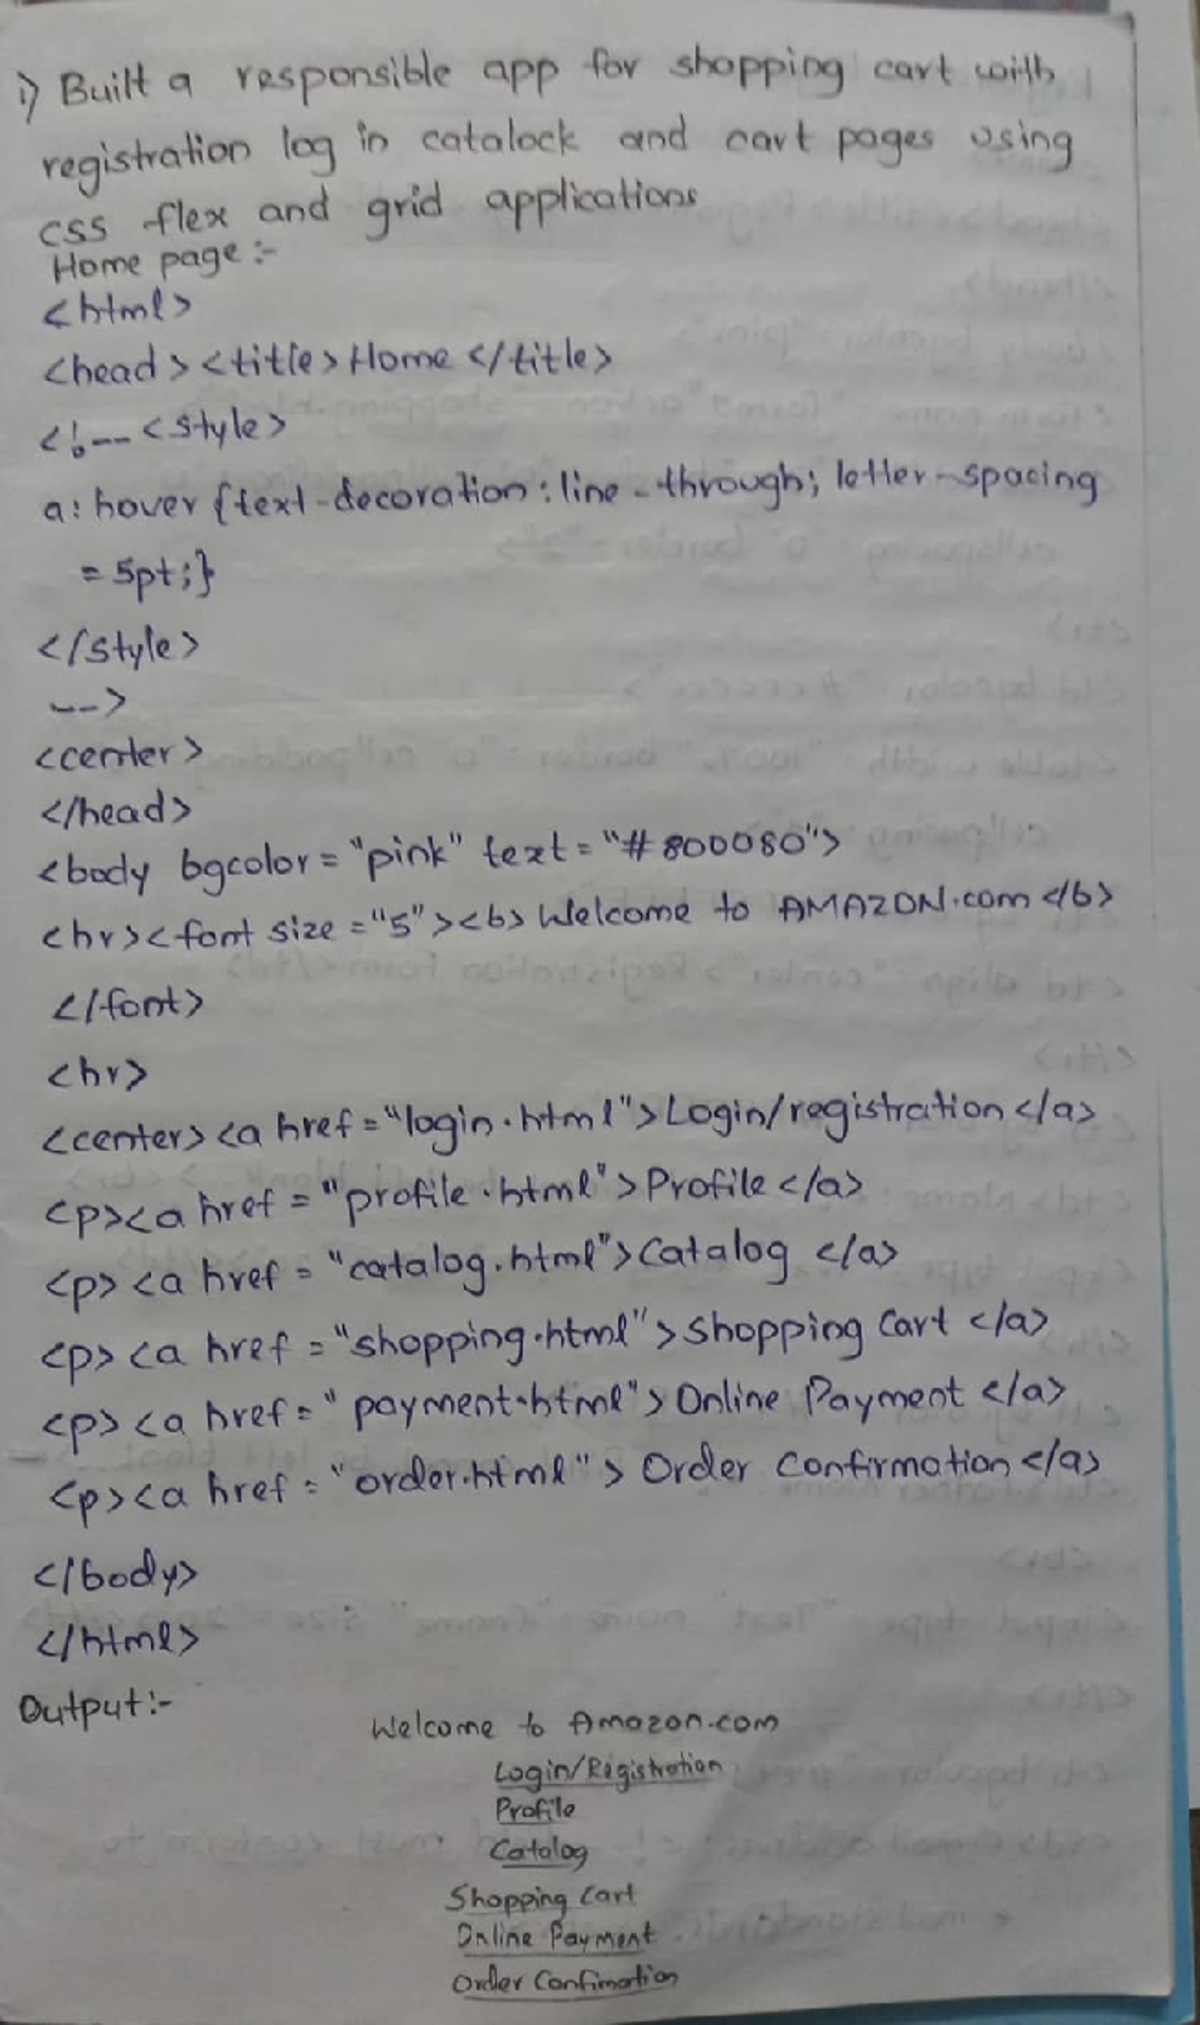 i) Built a responsible app for shopping cart with
registration log in catalock and cart pages using
css flex and grid applications
Home page :-
<html>
<head><title>Home</title>
<!-- <style>
a:hover {text-decoration:line-through; letter-spacing
= 5pt;}
</style>
-->
<center>
</head>
<body bgcolor = "pink" text = "#800080">
<hr><font size = "5"><b>Welcome to AMAZON.com</b>
</font>
<hr>
<center><a href = "login.html">Login/registration</a>
<p><a href = "profile.html">Profile</a>
<p><a href = "catalog.html">Catalog</a>
<p><a href = "shopping.html">Shopping Cart</a>
<p><a href = "payment.html">Online Payment</a>
<p><a href = "order.html">Order Confirmation</a>
</body>
</html>
Output:-
Welcome to Amazon.com
Login/Registration
Profile
Catalog
Shopping Cart
Online Payment
Order Confimation